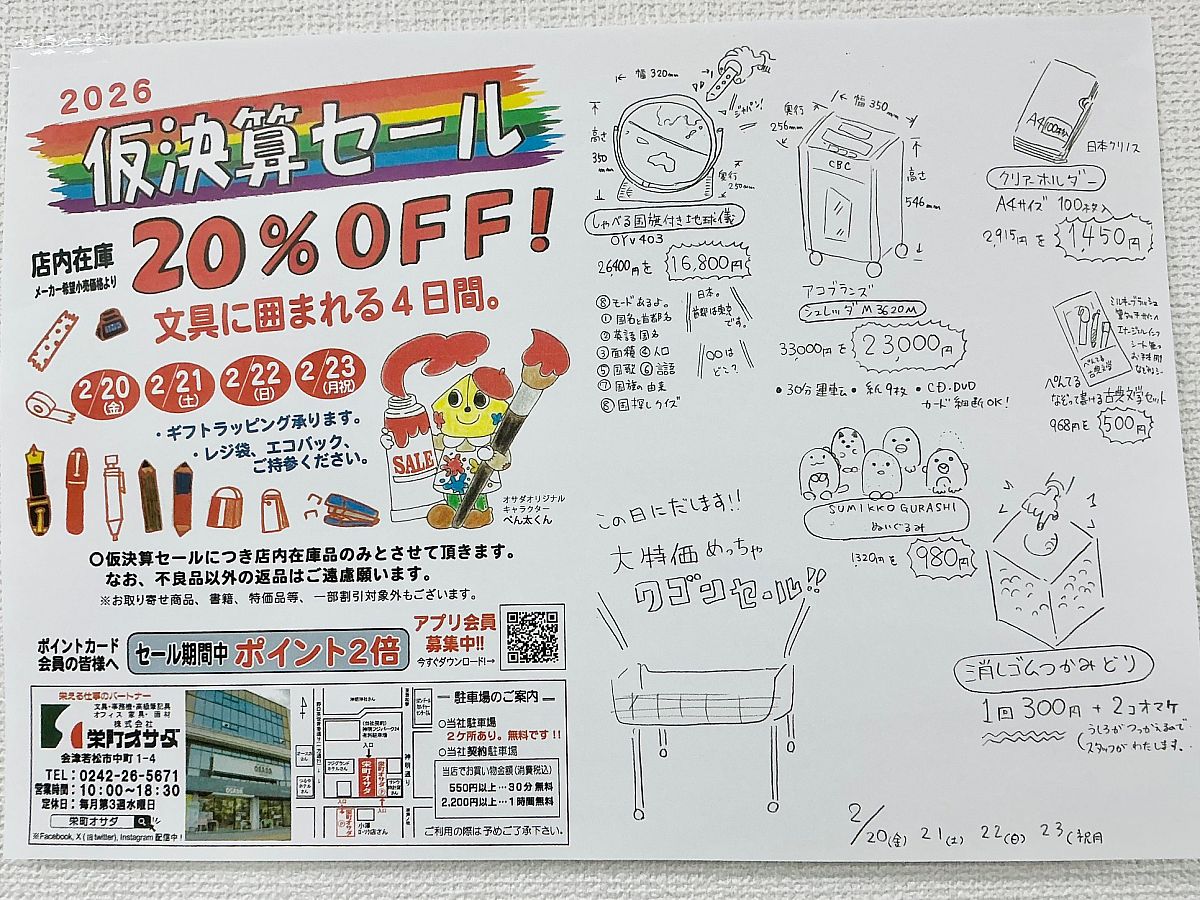 2026
仮決算セール
店内在庫
メーカー希望小売価格より
20%OFF!
文具に囲まれる4日間。
2/20(金)
2/21(土)
2/22(日)
2/23(月祝)
・ギフトラッピング承ります。
・レジ袋、エコバック、
ご持参ください。
SALE
オサダオリジナル
キャラクター
ぺん太くん
○仮決算セールにつき店内在庫品のみとさせて頂きます。
なお、不良品以外の返品はご遠慮願います。
※お取り寄せ商品、書籍、特価品等、一部割引対象外もございます。
ポイントカード
会員の皆様へ
セール期間中 ポイント2倍
アプリ会員
募集中!!
今すぐダウンロード!→
栄える仕事のパートナー
文具・事務機・高級筆記具
オフィス家具・画材
株式会社
栄町オサダ
会津若松市中町1-4
TEL:0242-26-5671
営業時間:10:00〜18:30
定休日:毎月第3週水曜日
栄町オサダ
※Facebook, X(旧twitter), Instagram 配信中!
OSADA
神明通り
入口
栄町オサダ
駐車場のご案内
○当社駐車場
2ケ所あり。無料です!!
○当社契約駐車場
当店でお買い物金額(消費税込)
550円以上…30分無料
2,200円以上…1時間無料
ご利用の際は予めご了承下さい。
幅320mm
ジャパン!
高さ
350mm
奥行
250mm
しゃべる国旗付き地球儀
OYV403
26,400円を
16,800円
⑧モードあるよ。
①国名と首都名
②英語国名
③面積 ④人口
⑤国歌 ⑥言語
⑦国旗の由来
⑧国探しクイズ
日本。
首都は東京
です。
○○は
どこ?
奥行
256mm
幅350mm
CBC
高さ
546mm
アコブランズ
シュレッダM3620M
33000円を
23,000円
・30分運転・紙9枚・CD.DVD
カード細断OK!
A4100枚入
日本クリノス
クリアーホルダー
A4サイズ 100枚入
2,915円を
1450円
ミルキーブラッシュ
シート
ぺんてる
古典文学
ぺんてる
なぞって書ける古典文学セット
968円を
500円
SUMIKKOGURASHI
ぬいぐるみ
1320円を
980円
この日にだします!!
大特価めっちゃ
ワゴンセール!!
消しゴムつかみどり
1回300円+2コオマケ
(うしろがつかえるので
スタッフがわたします。)
2/20(金) 21(土) 22(日) 23(祝月